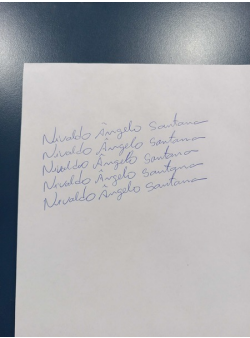 Nivaldo Ângelo Santana
Nivaldo Ângelo Santana
Nivaldo Ângelo Santana
Nivaldo Ângelo Santana
Nivaldo Ângelo Santana